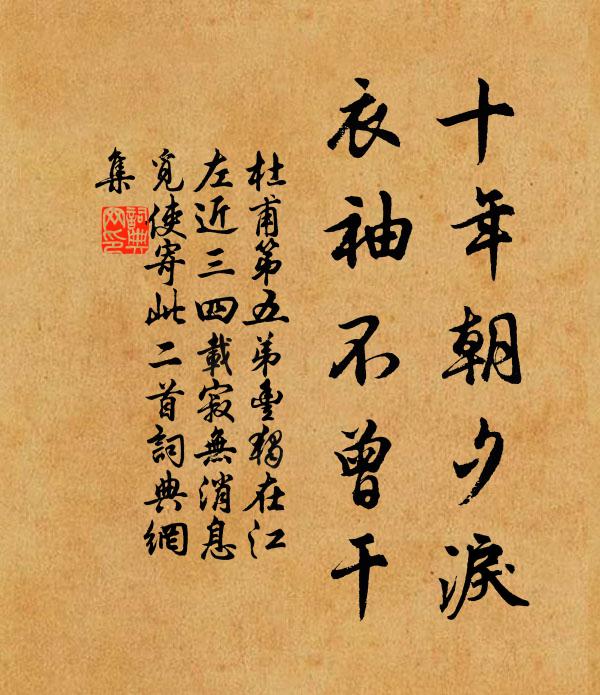 十年朝夕淚
衣袖不曾干
杜甫第五弟豐獨在江
左近三四載寂無消息
覓使寄此二首詞典網
集
詞典網印